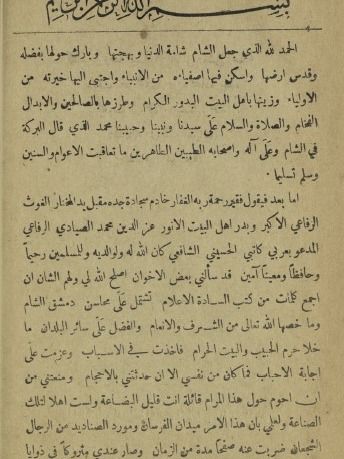 بسم الله الرحمن الرحيم
الحمد لله الذي جعل الشام شامة الدنيا وبهجتها وبارك حولها بفضله
وقدس ارضها واسكن فيها اصفياءه من الانبياء واجتبى اليها خيرته من
الاولياء وزينها باهل البيت البدور الكرام وطرزها بالصالحين والابدال
الفخام والصلاة والسلام على سيدنا ونبينا وحبيبنا محمد الذي قال البركة
في الشام وعلى آله واصحابه الطيبين الطاهرين ما تعاقبت الاعوام والسنين
وسلم تسليما
اما بعد فيقول فقير رحمة ربه الغفار خادم سجادة جده مقبل يد المختار الغوث
الرفاعي الاكبر وبدر اهل البيت الانور عز الدين محمد الصيادي الرفاعي
المدعو بعربي كاتبي الحسيني الشافعي كان الله له ولوالديه وللمسلمين رحيماً
وحافظاً ومعيناً آمين قد سألني بعض الاخوان اصلح الله لي ولهم الشان ان
اجمع كلمات من كتب السادة الاعلام تشتمل على محاسن دمشق الشام
وما خصها الله تعالى من الشرف والانعام والفضل على سائر البلدان ما
خلا حرم الحبيب والبيت الحرام فاخذت في الاسباب وعزمت على
اجابة الاحباب فما كان من نفسي الا ان حدثتني بالاحجام ومنعتني من
ان احوم حول هذا المرام قائلة انت قليل البضاعة ولست اهلا لتلك
الصناعة ولعلمي بان هذا الامر ميدان الفرسان ومورد الصناديد من الرجال
الشجعان ضربت عنه صفحاً مدة من الزمان وصار عندي متروكاً في زوايا